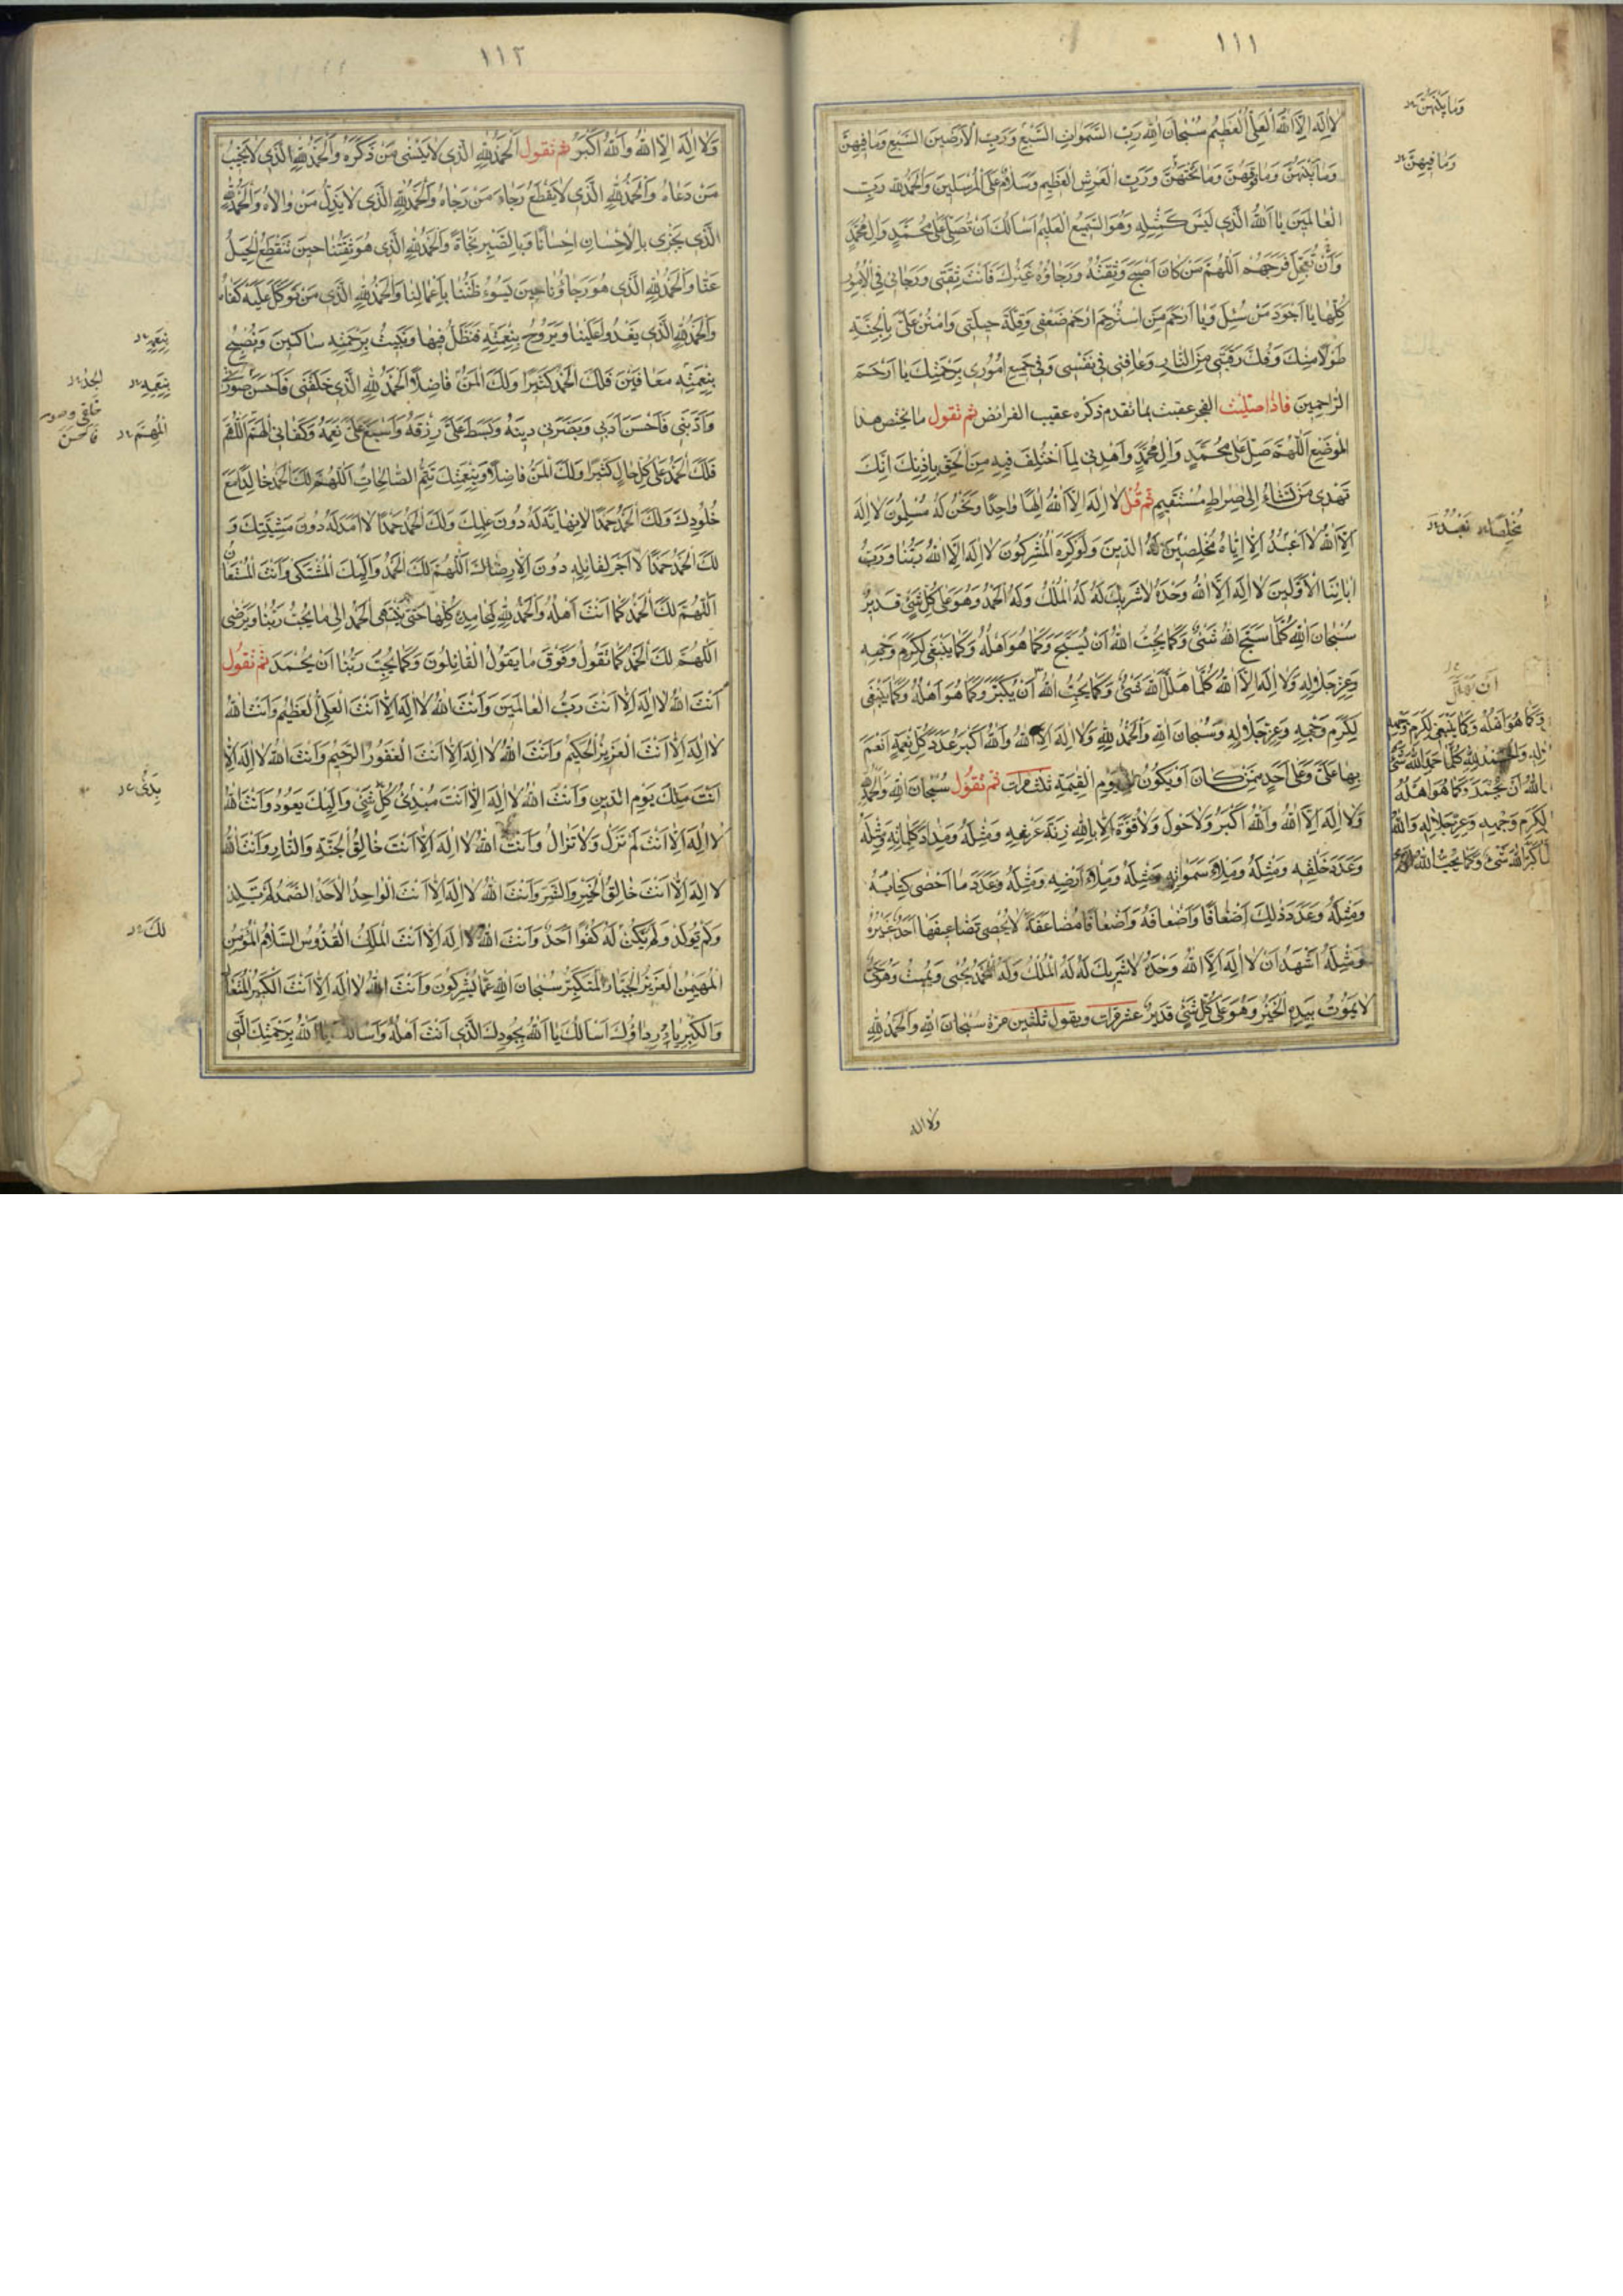 ١١١
لا اله الا الله العلي العظيم سبحان الله رب السموات السبع ورب الارضين السبع وما فيهن
وما بينهن وما فوقهن وما تحتهن ورب العرش العظيم وسلام على المرسلين والحمد لله رب
العالمين يا الله الذي ليس كمثله وهو السميع العليم اسالك ان تصلي على محمد وال محمد
وان تعجل فرجهم اللهم من كان اصبح وثقته ورجاؤه غيرك فانت ثقتي ورجائي في الامور
كلها يا اجود من سئل ويا ارحم من استرحم ارحم ضعفي وقلة حيلتي وامنن علي بالجنة
طولا منك وفك رقبتي من النار وعافني في نفسي وفي جميع اموري برحمتك يا ارحم
الراحمين فاذا صليت الفجر عقبت بما تقدم ذكره عقيب الفرائض ثم تقول ما يختص هذا
الموضع اللهم صل على محمد وال محمد واهدني لما اختلف فيه من الحق باذنك انك
تهدي من تشاء الى صراط مستقيم ثم قل لا اله الا الله الها واحدا ونحن له مسلمون لا اله
الا الله لا اعبد الا اياه مخلصين له الدين ولو كره المشركون لا اله الا الله ربنا ورب
ابائنا الاولين لا اله الا الله وحده لا شريك له له الملك وله الحمد وهو على كل شئ قدير
سبحان الله كلما سبح الله شئ وكما يحب الله ان يسبح وكما هو اهله وكما ينبغي لكرم وجهه
وعز جلاله ولا اله الا الله كلما هلل الله شئ وكما يحب الله ان يكبر وكما هو اهله وكما ينبغي
لكرم وجهه وعز جلاله وسبحان الله والحمد لله ولا اله الا الله والله اكبر عدد كل نعمة انعم
بها علي وعلى احد ممن كان او يكون الى يوم القيمة ثلث مرات ثم تقول سبحان الله والحمد لله
ولا اله الا الله والله اكبر ولا حول ولا قوة الا بالله زنة عرشه ومثله ومداد كلماته ومثله
وعدد خلقه ومثله وملاء سمواته ومثله وملاء ارضه ومثله وعدد ما احصى كتابه
ومثله وعدد ذلك اضعافا واضعافه واضعافا مضاعفة لا يحصي تضاعيفها احد غيره
ومثله اشهد ان لا اله الا الله وحده لا شريك له له الملك وله الحمد يحيي ويميت وهو حي
لا يموت بيده الخير وهو على كل شئ قدير عشر مرات ويقول ثلثين مرة سبحان الله والحمد لله
ولا اله
وما بينهن
وما فيهن
مخلصا نعبد
ان يهلل
وكما هو اهله وكما ينبغي لكرم وجهه
والحمد لله كلما حمد الله شئ
الله ان يحمد وكما هو اهله
لكرم وجهه وعز جلاله والله
كبر الله شئ وكما يحب الله
١١٢
ولا اله الا الله والله اكبر ثم تقول الحمد لله الذي لا ينسى من ذكره والحمد لله الذي لا يخيب
من دعاه والحمد لله الذي لا يقطع رجاء من رجاه والحمد لله الذي لا يذل من والاه والحمد لله
الذي يجزي بالاحسان احسانا وبالصبر نجاة والحمد لله الذي هو ثقتنا حين تنقطع الحيل
عنا والحمد لله الذي هو رجاؤنا حين يسوء ظننا باعمالنا والحمد لله الذي من توكل عليه كفاه
والحمد لله الذي يغدوا علينا ويروح بنعمته فنظل فيها ونبيت برحمته ساكنين ونصبح
بنعمته معافين فلك الحمد كثيرا ولك المن فاضلا والحمد لله الذي خلقني فاحسن صورتي
وادبني فاحسن ادبي وبصرني دينه وبسط علي رزقه واسبغ علي نعمه وكفاني الهم اللهم
فلك الحمد على كل حال كثيرا ولك المن فاضلا وبنعمتك تتم الصالحات اللهم لك الحمد خالدا مع
خلودك ولك الحمد حمدا لا نهاية له دون علمك ولك الحمد حمدا لا امد له دون مشيتك و
لك الحمد حمدا لا اجر لقائله دون الا رضاك اللهم لك الحمد واليك المشتكى وانت المستعان
اللهم لك الحمد كما انت اهله والحمد لله بمحامده كلها حتى ينتهي الحمد الى ما يحب ربنا ويرضى
اللهم لك الحمد كما تقول وفوق ما يقول القائلون وكما يحب ربنا ان يحمد ثم تقول
انت الله لا اله الا انت رب العالمين وانت الله لا اله الا انت العلي العظيم وانت الله
لا اله الا انت العزيز الحكيم وانت الله لا اله الا انت الغفور الرحيم وانت الله لا اله الا
انت ملك يوم الدين وانت الله لا اله الا انت مبدئ كل شئ واليك يعود وانت الله
لا اله الا انت لم تزل ولا تزال وانت الله لا اله الا انت خالق الجنة والنار وانت الله
لا اله الا انت خالق الخير والشر وانت الله لا اله الا انت الواحد الاحد الصمد لم يلد
ولم يولد ولم يكن له كفوا احد وانت الله لا اله الا انت الملك القدوس السلام المؤمن
المهيمن العزيز الجبار المتكبر سبحان الله عما يشركون وانت الله لا اله الا انت الكبير المتعال
والكبرياء رداؤك اسالك يا الله بجودك الذي انت اهله واسالك يا الله برحمتك التي
بنعمه
بنعمه
المهم
بدئ
لك